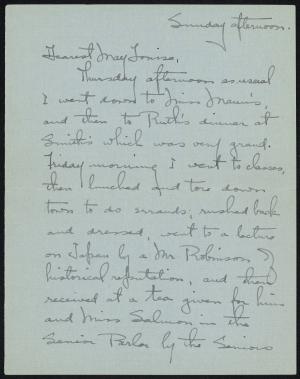 Sunday afternoon.
Dearest May Louise,
Thursday afternoon as usual
I went down to Miss Mann's,
and then to Ruth's dinner at
Smith's which was very grand.
Friday morning I went to classes,
then lunched and tore down
town to do errands, rushed back
and dressed, went to a lecture
on Japan by a Mr. Robinson of
historical reputation, and then
received at a tea given for him
and Miss Salmon in the
Senior Parlor by the Seniors